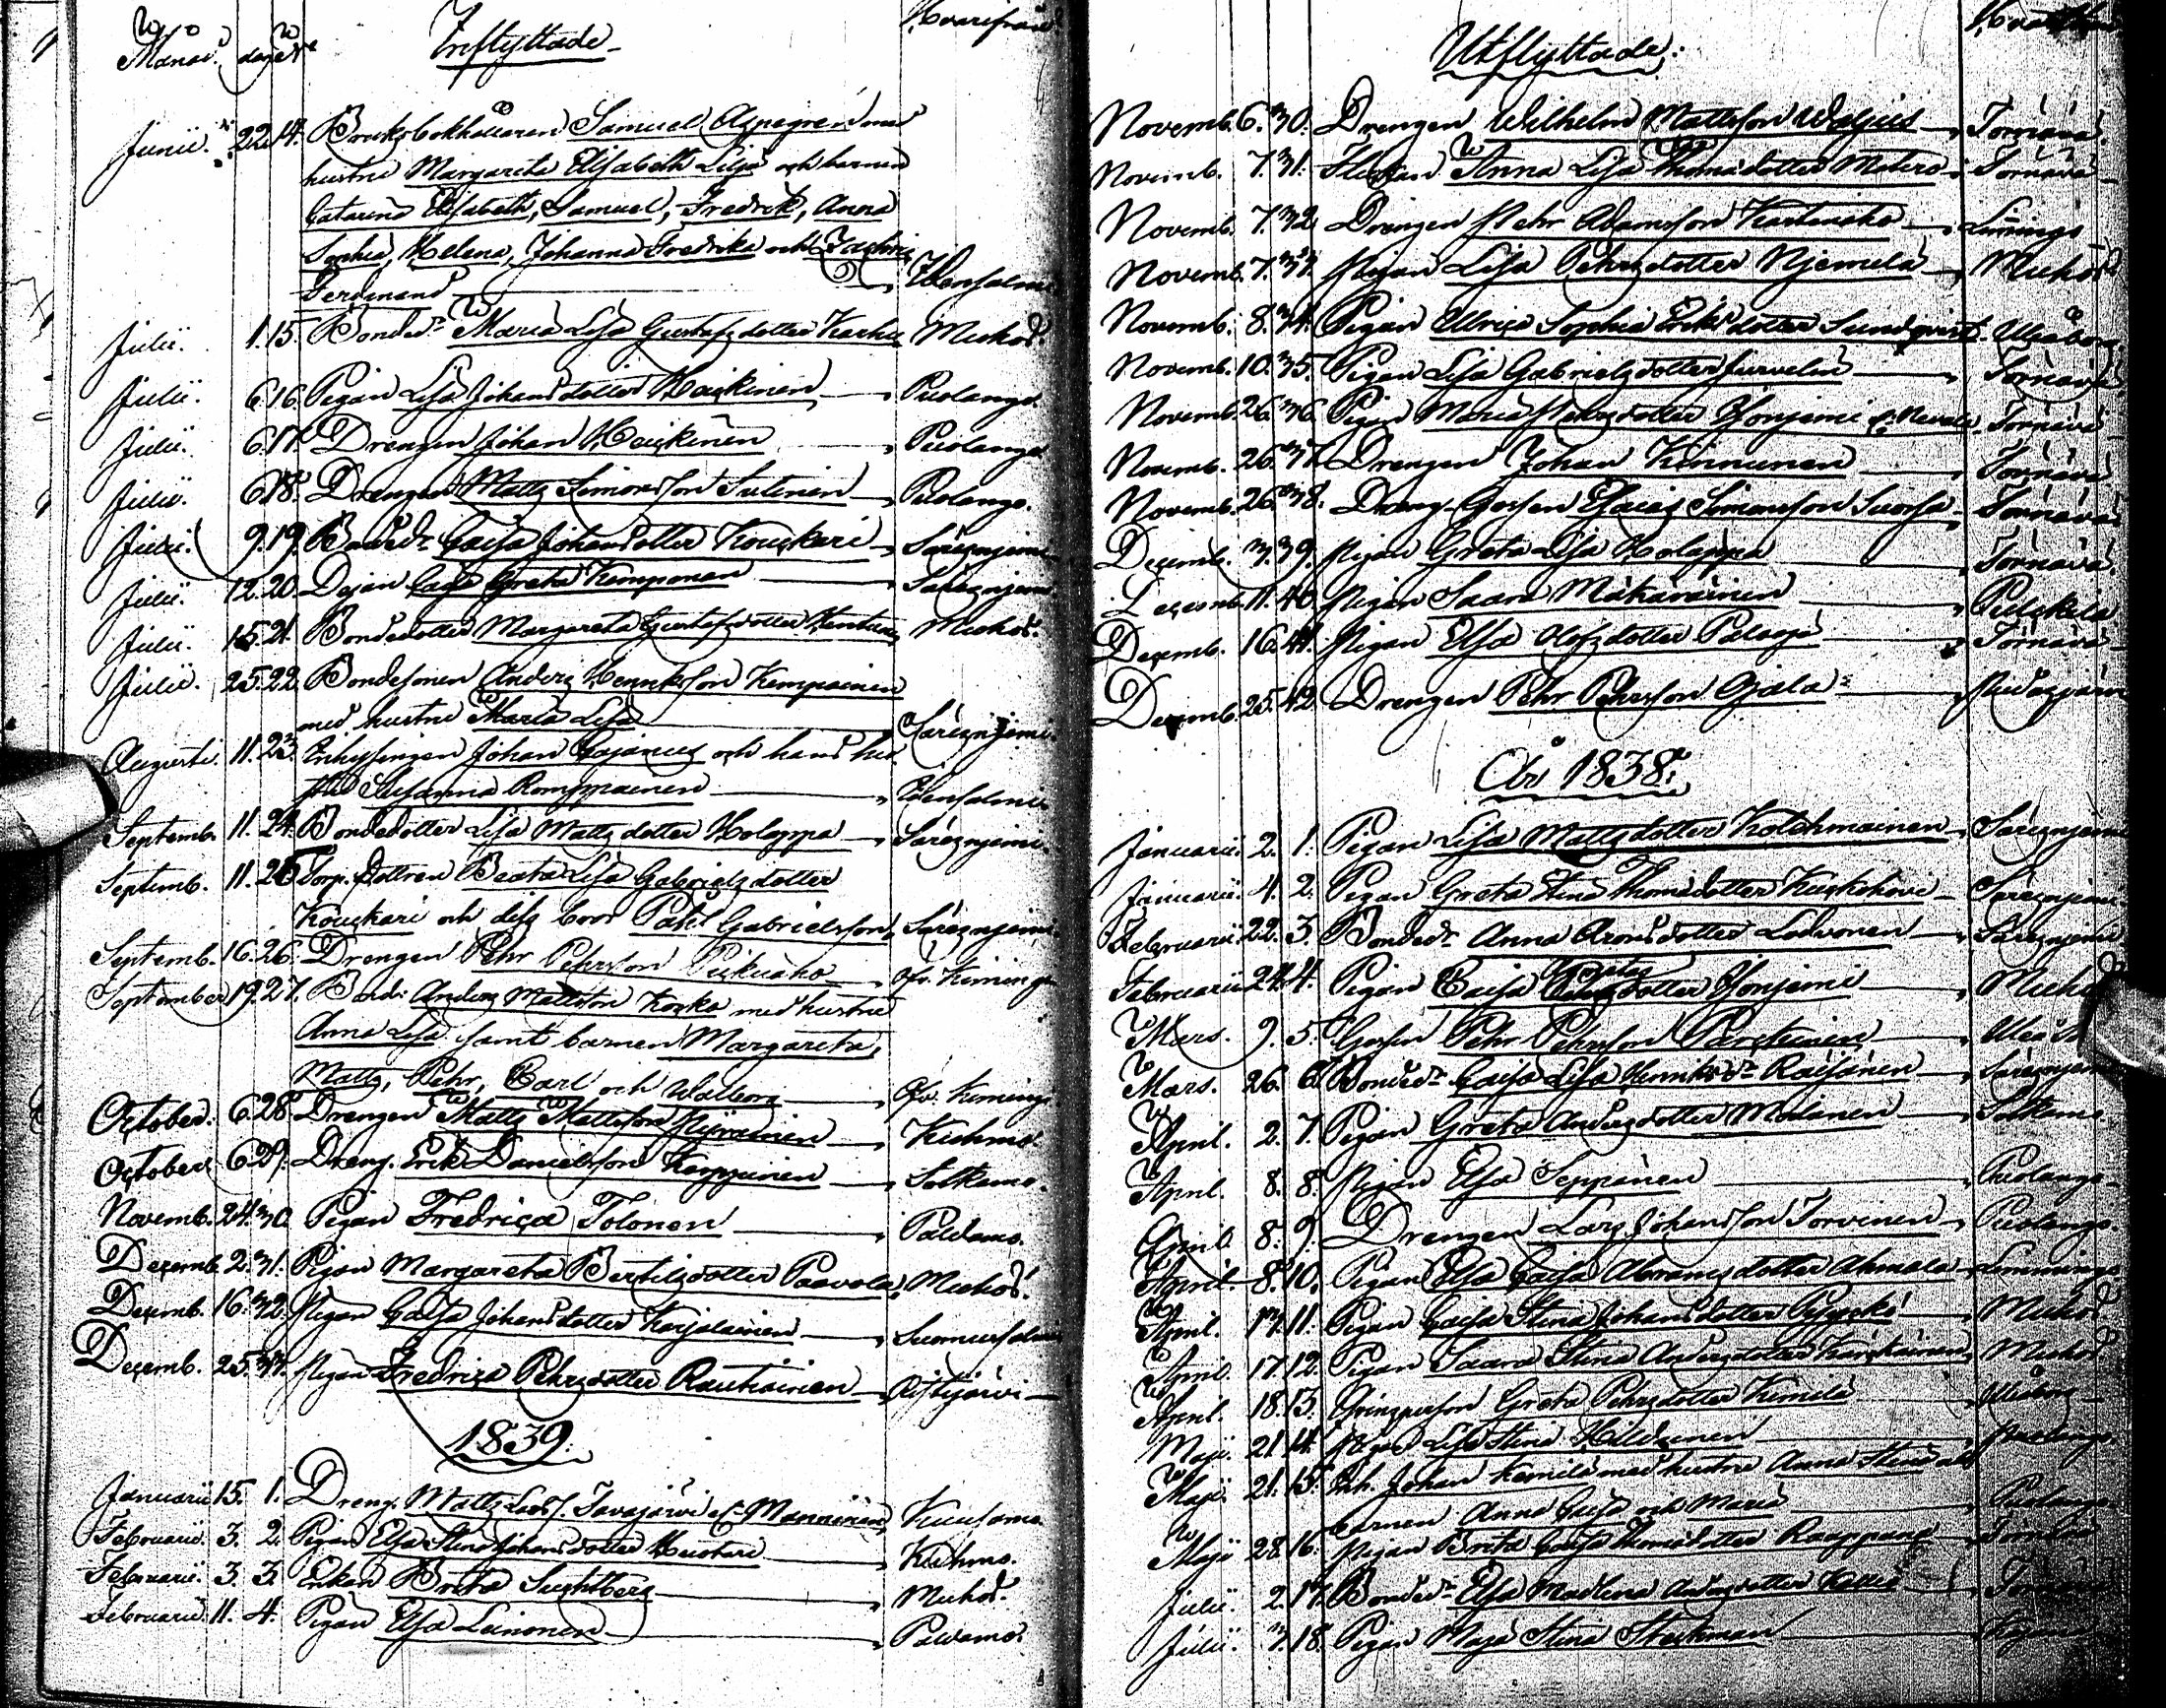 Månad. dag. N:o Inflyttade Hvarifrån
Junii. 22. 14. Bruksbokhållaren Samuel Alpegren med
hustru Margareta Elisabeth Lilja och barnen
Catarina Elisabeth, Samuel, Fredrik, Anna
Sophia, Helena, Johanna Fredrika och
Ferdinand Idensalmi
Julii. 1. 15. Bonded:r Maria Lisa Gustafsdotter Karhu Muhos.
Julii. 6. 16. Pigan Lisa Johansdotter Haickinen Puolango.
Julii. 6. 17. Drengen Johan Haickinen Puolango
Julii. 6. 18. Drengen Matts Simonsson Sutinen Puolango.
Julii. 9. 19. Bonded:r Caisa Johansdotter Kouckari Säresniemi
Julii. 12. 20. Pejan Caisa Greta Kemponen Säresniemi
Julii. 15. 21. Bondedotter Margareta Gustafsdotter Muhos.
Julii. 25. 22. Bondesonen Anders Henriksson Kemppainen
med hustru Maria Lisa Säresniemi.
Augusti. 11. 23. Inhysingen Johan Cajanus och hans hu-
stru Susanna Romppainen Idensalmi
Septemb. 11. 24. Bondedotter Lisa Mattsdotter Holappa Säresniemi.
Septemb. 11. 25. Torp. dottren Beata Lisa Gabrielsdotter
Kouckari och dess bror Pahl Gabrielsson Säresniemi.
Septemb. 16. 26. Drengen Pehr Pehrsson Pickuaho Öfv. Kiminge
September 19. 27. Bond: Anders Mattsson Koska med hustru
Anna Lisa samt barnen Margareta,
Matts, Pehr, Carl och Walborg Öfv. Kiminge
October. 6. 28. Drengen Matts Mattsson Kuhmo.
October 6. 29. Dreng. Erik Danielsson Karppinen Sotkamo.
Novemb. 24. 30. Pigan Fredrica Tolonen Paldamo.
Decemb. 2. 31. Pigan Margareta Bertilsdotter Paavola Muhos.
Decemb. 16. 32. Pigan Caisa Johansdotter Karjalainen Suomussalmi
Decemb. 25. 33. Pigan Fredrica Pehrsdotter Rautiainen Ristijärvi
1839.
Januarii 15. 1. Dreng. Matts Larss. Tavajärvi el. Manninen Kuusamo
Februarii. 3. 2. Pigan Elsa Stina Johansdotter Huotari Kuhmo.
Februarii. 3. 3. Enkan Brita Suchtberg Muhos.
Februarii. 11. 4. Pigan Elsa Leinonen Paldamo.
Utflyttade.
Novemb. 6. 30. Drengen Wilhelm Mattsson Waljus Törnävä.
Novemb. 7. 31. Flickan Anna Lisa Thomædotter Matero Törnävä
Novemb. 7. 32. Drengen Pehr Adamsson Karhuaho Limingo
Novemb. 7. 33. Pigan Lisa Pehrsdotter Njemelä Muhos
Novemb. 8. 34. Pigan Ulrica Sophia Eriksdotter Sundqvist Uleåborg
Novemb. 10. 35. Pigan Lisa Gabrielsdotter Juvelin Törnävä
Novemb. 26. 36. Pigan Maria Pehrsdotter Honjemi el. Nevala Törnävä
Novemb. 26. 37. Drengen Johan Kinnunen Törnävä
Novemb. 26. 38. Dreng. Gossen Esaias Simonsson Suorsa Törnävä
Decemb. 3. 39. Pigan Greta Lisa Holappa Törnävä.
Decemb. 11. 40. Pigan Saara Mäkäräinen Pulckila
Decemb. 16. 41. Pigan Elsa Olofsdotter Palosa Törnävä
Decemb. 25. 42. Drengen Pehr Pehrsson Ojala Pudasjärvi
År 1838.
Januarii. 2. 1. Pigan Lisa Mattsdotter Kolehmainen Säresniemi
Januarii. 4. 2. Pigan Greta Stina Thomædotter Säresniemi
Februarii 22. 3. Bonded:r Anna Aronsdotter Lodvonen Säresniemi
Februarii 24. 4. Pigan Caisa dotter Honjemi Muhos
Mars. 9. 5. Gossen Pehr Pehrsson Uleå
Mars. 26. 6. Bonded:r Caisa Lisa Henriksd:r Räisänen Säresniemi
April. 2. 7. Pigan Greta Andersdotter Molinen Sotkamo
April. 8. 8. Pigan Elsa Seppänen Puolango
April. 8. 9. Drengen Lars Johansson Torvinen Puolango.
April. 8. 10. Pigan Elsa Caisa Abramsdotter Ahmala Limingo
April. 17. 11. Pigan Caisa Stina Johansdotter Pyyckö Muhos
April. 17. 12. Pigan Saara Stina Andersdotter Muhos
April. 18. 13. Greta Pehrsdotter Kemilä Uleåborg
Maji. 21. 14. Pigan Lisa Stina Puolango.
Maji. 21. 15. Inh. Johan Kemilä med hustru Anna Stina och
barnen Anna Caisa och Maria Puolango
Maji 28. 16. Pigan Brita Caisa Thomædotter Raappana
Julii. 2. 17. Bonded:r Elsa Madlena Andersdotter
Julii. 3. 18. Pigan Maja Stina Steckman